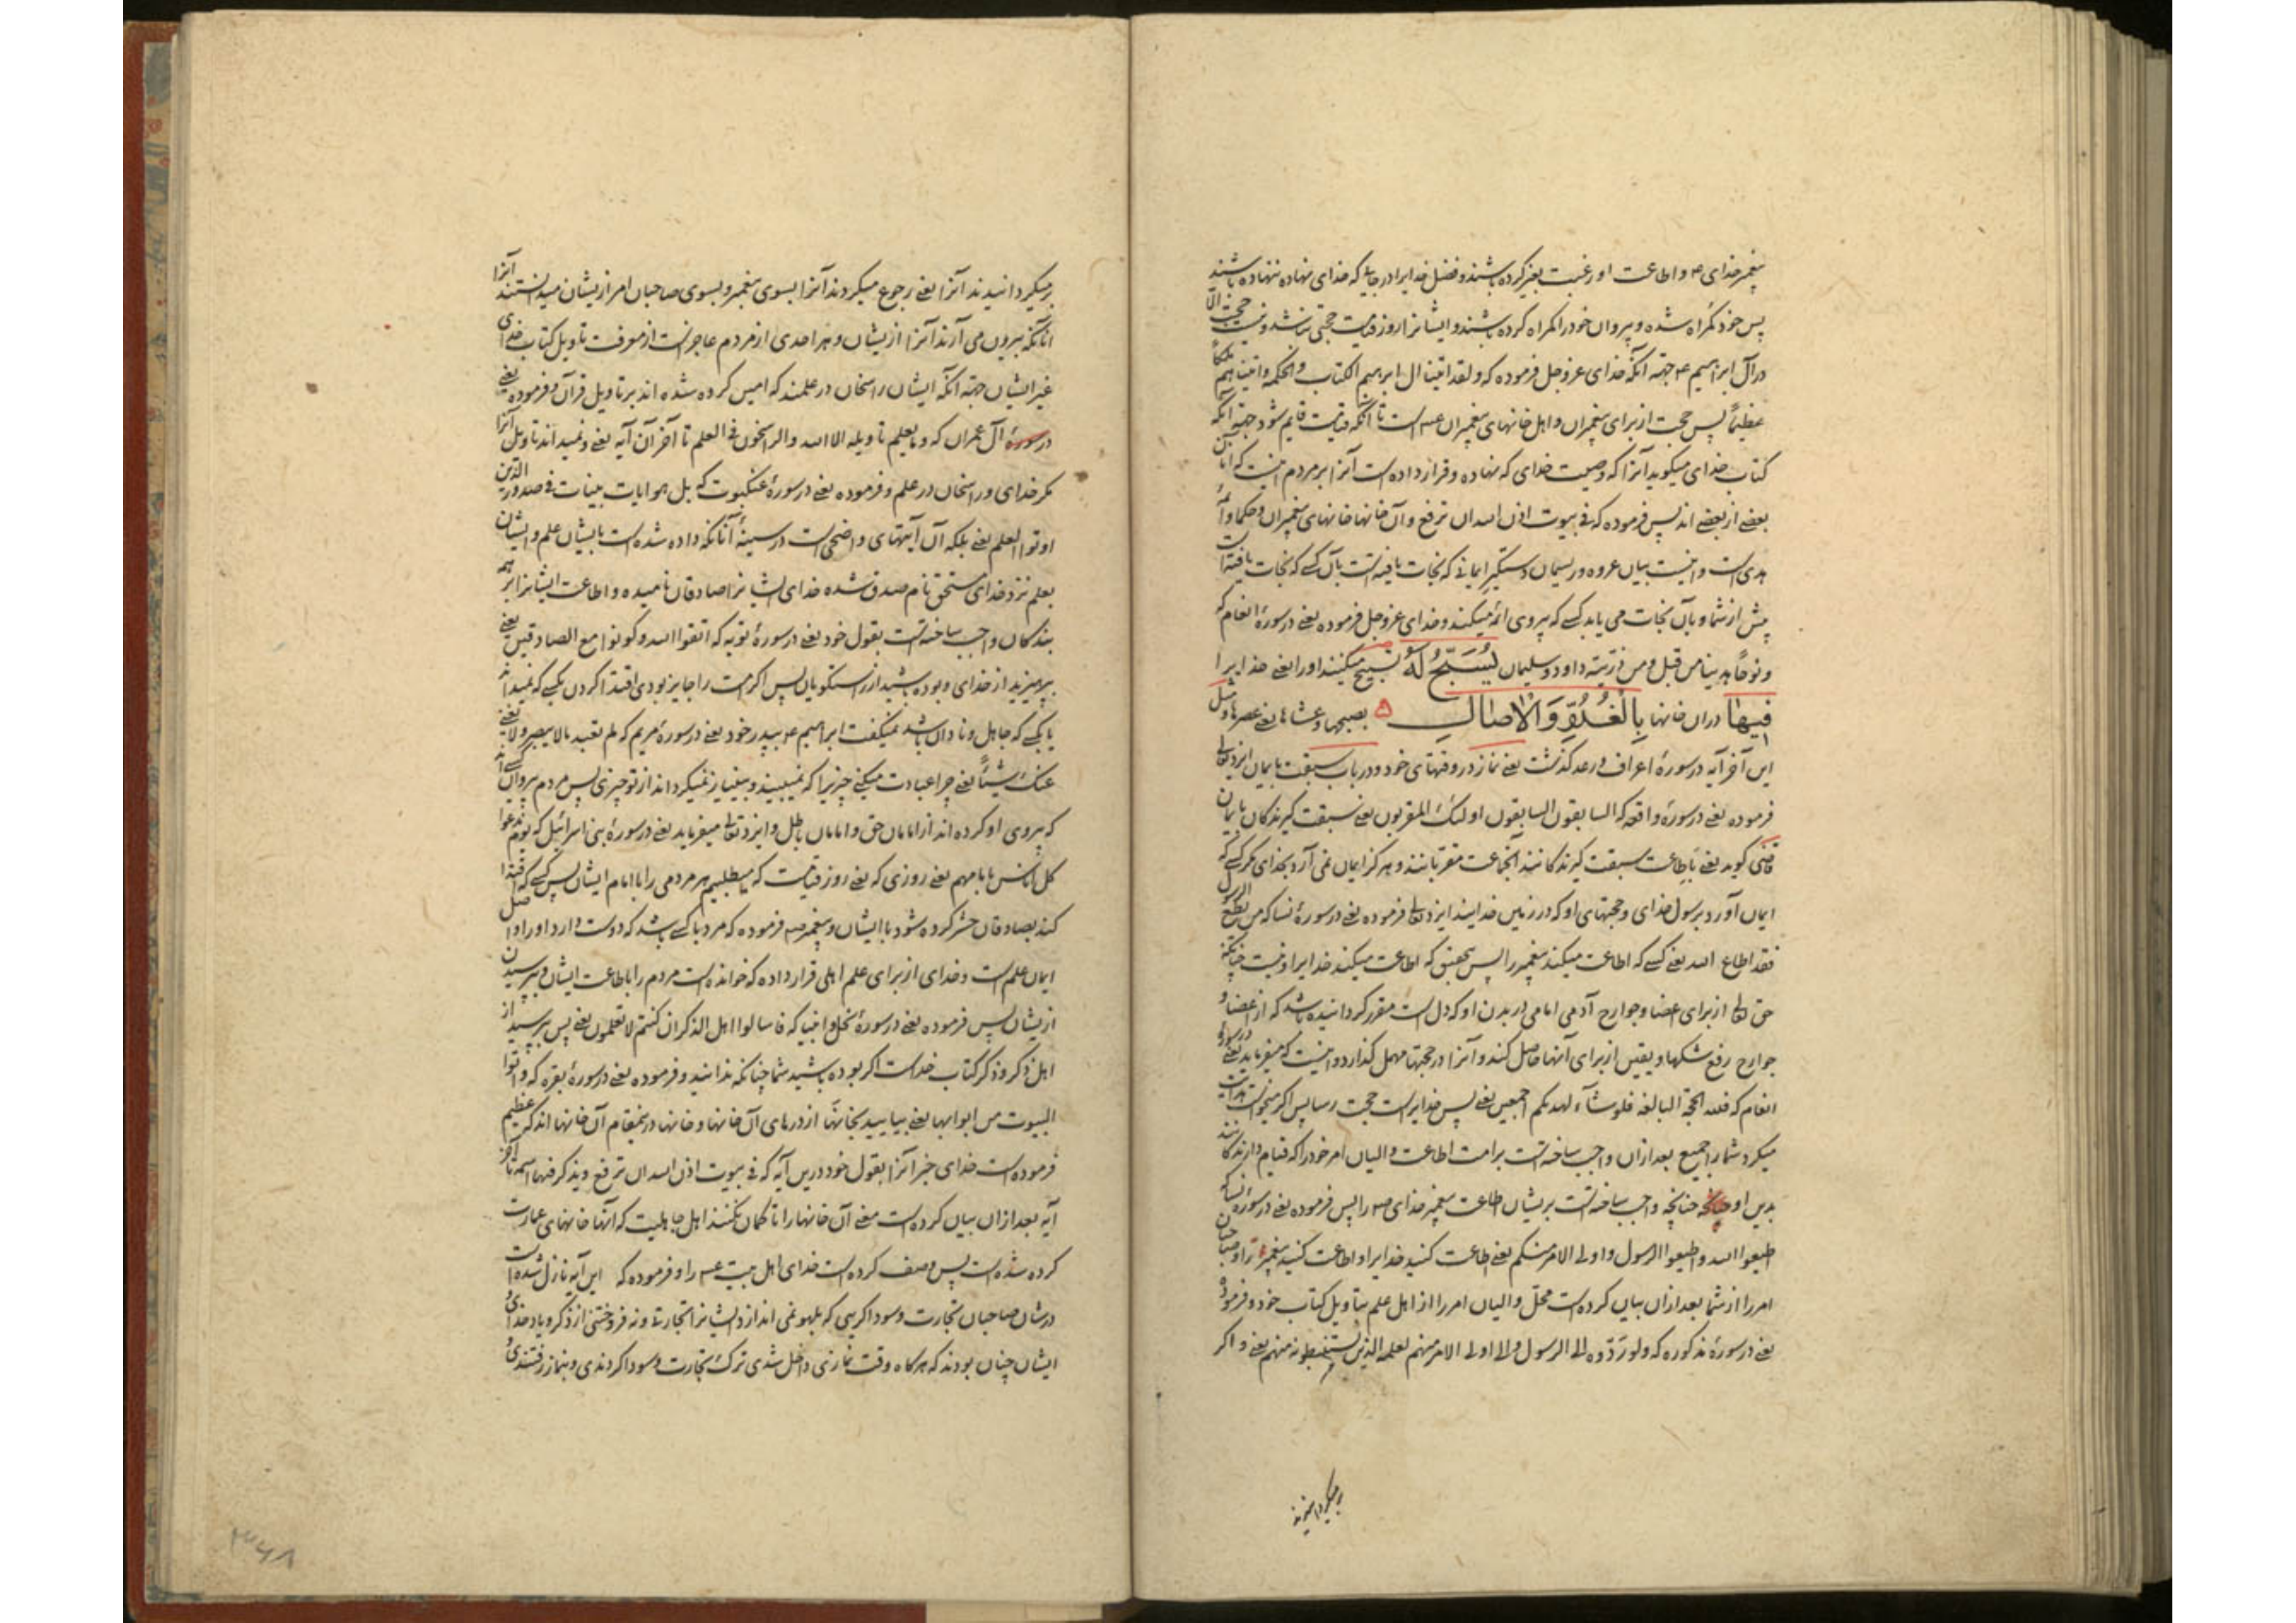 پیغمبر خدای ص و اطاعت او رغبت بغیر کرده باشند و فضل خدایرا در جایی که خدای نهاده ننهاده باشند
پس خود گمراه شده و پیروان خود را گمراه کرده باشند و ایشانرا روز قیامت حجتی نباشد و نیست حجت الا
در آل ابراهیم ع جهة آنکه خدای عز و جل فرموده که و لقد اتینا ال ابرهیم الکتاب و الحکمه و اتیناهم ملکا
عظیماً پس حجت از برای پیغمبران و اهل خانهای پیغمبران است تا آنکه قیامت قایم شود جهة آنکه
کتاب خدای میکوید آنرا که وصیت خدای که نهاده و قرار داده است آنرا بر مردم اینست که
بعضے از بعضے اند پس فرموده که فی بیوت اذن الله ان ترفع و آن خانها خانهای پیغمبران و حکما و ائمه
هدی است و اینست بیان عروه و ریسمان دستکیر ایمانی که نجات یافته است بآن کسے که نجات یافته است
پیش از شما و بآن نجات می یابد کسے که پیروی ائمه میکند و خدای عز و جل فرموده یعنے در سورۀ انعام که
و نوحاً هدینا من قبل و من ذریته داود و سلیمان یُسَبِّحُ لَهُ تسبیح میکنند او را یعنے خدایرا
فِیهَا در ان خانها بِالْغُدُوِّ وَ الْاٰصَالِ بصبحها و عشاها یعنے عصرها و مثل
این آخر آیه در سورۀ اعراف و رعد کذشت یعنے نماز در وقتهای خود و در باب سبقت بایمان ایزد تعالی
فرموده یعنے در سورۀ واقعه که السابقون السابقون اولئک المقربون یعنے سبقت کیرندکان بایمان
قاضی کوید یعنے باطاعت سبقت کیرندکانند آنجماعت مقربانند و هرکز ایمان نمی آرد بخدای مکر کسے که
ایمان آورد برسول خدای و حجتهای او که در زمین خدایند ایزد تعالی فرموده یعنے در سورۀ نسا که من یطع الرسول
فقد اطاع الله یعنے کسے که اطاعت میکند پیغمبر را پس بتحقیق که اطاعت میکند خدایرا و نیست چنانکه
حق تعالی از برای اعضا و جوارح آدمی امامی در بدن او که دل است مقرر کردانیده باشد که از اعضا و
جوارح رفع شکها و یقین از برای آنها حاصل کند و آنرا در حجتها مهمل کذارد و اینست که میفرماید یعنے در سورۀ
انعام که فلله الحجة البالغه فلو شآء لهدیکم اجمعین یعنے پس خدایراست حجت رسا پس اکر میخواست هدایت
میکرد شما را جمیع بعد ازان واجب ساخته است بر امت اطاعت والیان امر خود را که قیام دارندکانند
بدین او چنانچه واجب ساخته است بریشان طاعت پیغمبر خدای ص را پس فرموده یعنے در سورۀ نسا که
اطیعوا الله و اطیعوا الرسول و اولی الامر منکم یعنے اطاعت کنید خدایرا و اطاعت کنید پیغمبر را و صاحبان
امر را از شما بعد ازان بیان کرده است محل والیان امر را از اهل علم بتاویل کتاب خود و فرموده
یعنے در سورۀ مذکوره که و لو ردّوه الی الرسول و الی اولی الامر منهم لعلمه الذین یستنبطونه منهم یعنے و اکر
برمیکردانیدند
برمیکردانیدند آنرا یعنے رجوع میکردند آنرا بسوی پیغمبر و بسوی صاحبان امر ازیشان میدانستند آنرا
آنانکه بیرون می آرند آنرا ازیشان و هر احدی از مردم عاجز است از معرفت تاویل کتاب خدای
غیر ایشان جهة آنکه ایشان راسخان در علمند که امین کرده شده اند بر تاویل قرآن و فرموده یعنے
در سورۀ آل عمران که و ما یعلم تاویله الا الله و الراسخون فی العلم تا آخر آن آیه یعنے و نمیداند تاویل آنرا
مکر خدای و راسخان در علم و فرموده یعنے در سورۀ عنکبوت که بل هو ایات بینات فی صدور الذین
اوتوا العلم یعنے بلکه آن آیتهای واضحی است در سینۀ آنانکه داده شده است بایشان علم و ایشان
بعلم نزد خدای مستحق نام صدق شده خدای ایشانرا صادقان نامیده و اطاعت ایشانرا بر همه
بندکان واجب ساخته است بقول خود یعنے در سورۀ توبه که اتقوا الله و کونوا مع الصادقین یعنے
بپرهیزید از خدای و بوده باشید از راستکویان پس اکر امت را جایز بودی اقتدا کردن بکسے که نمیداند
یا بکسے که جاهل و نادان باشد نمیکفت ابراهیم ع بپدر خود یعنے در سورۀ مریم که لم تعبد ما لا یبصر و لا یغنے
عنک شیئاً یعنے چرا عبادت میکنے چیزیرا که نمیبیند و بینیاز نمیکرداند از تو چیزی پس مردم پیروان کسے اند
که پیروی او کرده اند از امامان حق و امامان باطل و ایزد تعالی میفرماید یعنے در سورۀ بنی اسرائیل که یوم ندعوا
کل اناس بامامهم یعنے روزی که یعنے روز قیامت که میطلبیم هر مردمی را با امام ایشان پس کسے که اقتدا
کند بصادقان حشر کرده شود با ایشان و پیغمبر ص فرموده که مرد با کسے باشد که دوست دارد او را و اصل
ایمان علم است و خدای از برای علم اهلی قرار داده که خوانده است مردم را باطاعت ایشان و پرسیدن
ازیشان پس فرموده یعنے در سورۀ نحل و انبیا که فاسالوا اهل الذکر ان کنتم لا تعلمون یعنے پس بپرسید از
اهل ذکر و ذکر کتاب خداست اکر بوده باشید شما چنانکه ندانید و فرموده یعنے در سورۀ بقره که و اتوا
البیوت من ابوابها یعنے بیایید بخانها از درهای آن خانها و خانها درینمقام آن خانها اند که عظیم
فرموده است خدای خبر آنرا بقول خود درین آیه که فی بیوت اذن الله ان ترفع و یذکر فیها اسمه تا آخر
آیه بعد ازان بیان کرده است معنی آن خانها را تا کمان نکنند اهل جاهلیت که آنها خانهای عمارت
کرده شده است پس وصف کرده است خدای اهل بیت را و فرموده که این آیه نازل شده است
در شان صاحبان تجارت و سوداکریی که بلهو نمی اندازد ایشانرا تجارت و نه فروختنی از ذکر و یاد خدای
ایشان چنان بودند که هرکاه وقت نمازی داخل شدی ترک تجارت و سودا کردندی و بنماز رفتندی
۳۶۸